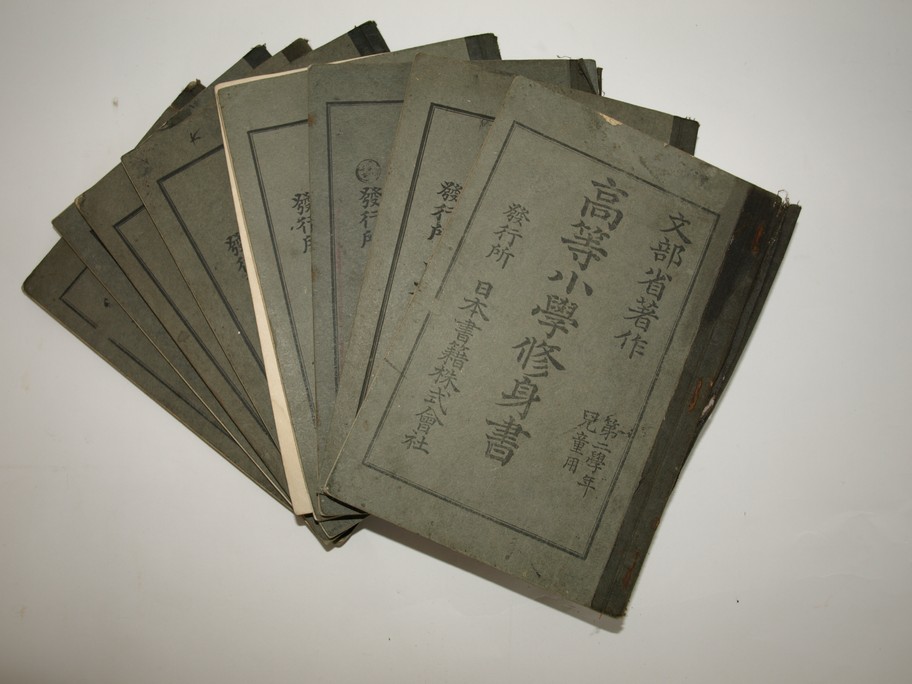 文部省著作
高等小學修身書
第二學年
兒童用
發行所 日本書籍株式會社
發行
發行
發行